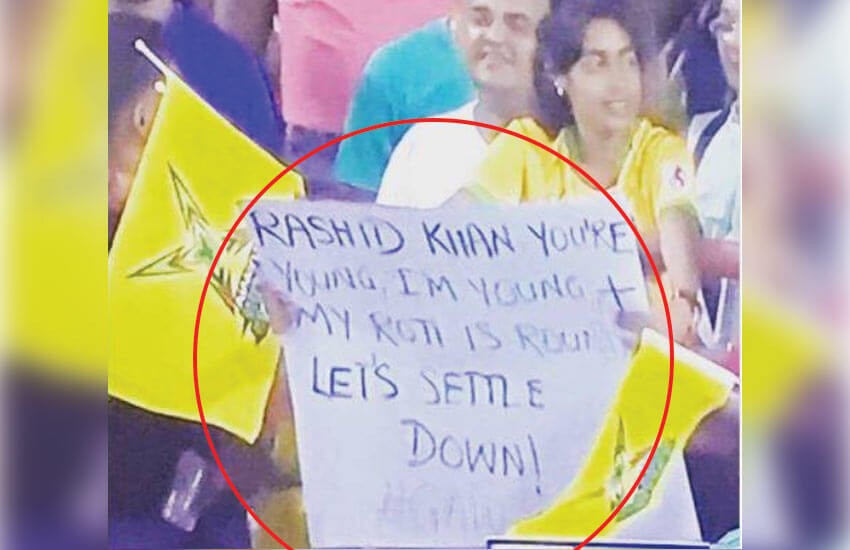 RASHID KHAN YOU'RE
YOUNG, I'M YOUNG, +
MY ROTI IS
LET'S SETTLE
DOWN!